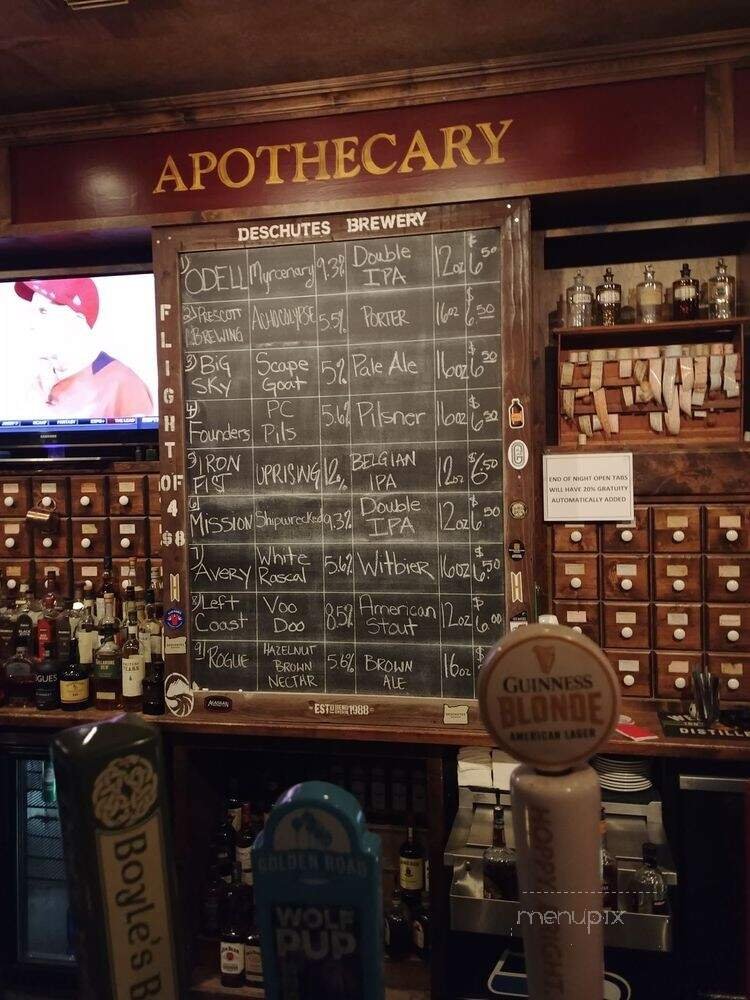 APOTHECARY
DESCHUTES BREWERY
FLIGHT OF 4 $8
1) ODELL Myrcenary 9.3% Double IPA 12oz $6.50
2) PRESCOTT BREWING 5.5% PORTER 16oz $6.50
3) BIG SKY Scape Goat 5% Pale Ale 16oz $6.50
4) Founders PC Pils 5.6% Pilsner 16oz $6.50
5) IRON FIST UPRISING 12% BELGIAN IPA 12oz $6.50
6) MISSION Shipwrecked 9.3% Double IPA 12oz $6.50
7) AVERY White Rascal 5.6% Witbier 16oz $6.50
8) Left Coast Voo Doo 8.5% American Stout 12oz $6.00
9) ROGUE HAZELNUT BROWN NECTAR 5.6% BROWN ALE 16oz $
EST 1988
END OF NIGHT OPEN TABS
WILL HAVE 20% GRATUITY
AUTOMATICALLY ADDED
GUINNESS
BLONDE
AMERICAN LAGER
Boyle's B
GOLDEN ROAD
WOLF
PUP
DISTILLE
menupix